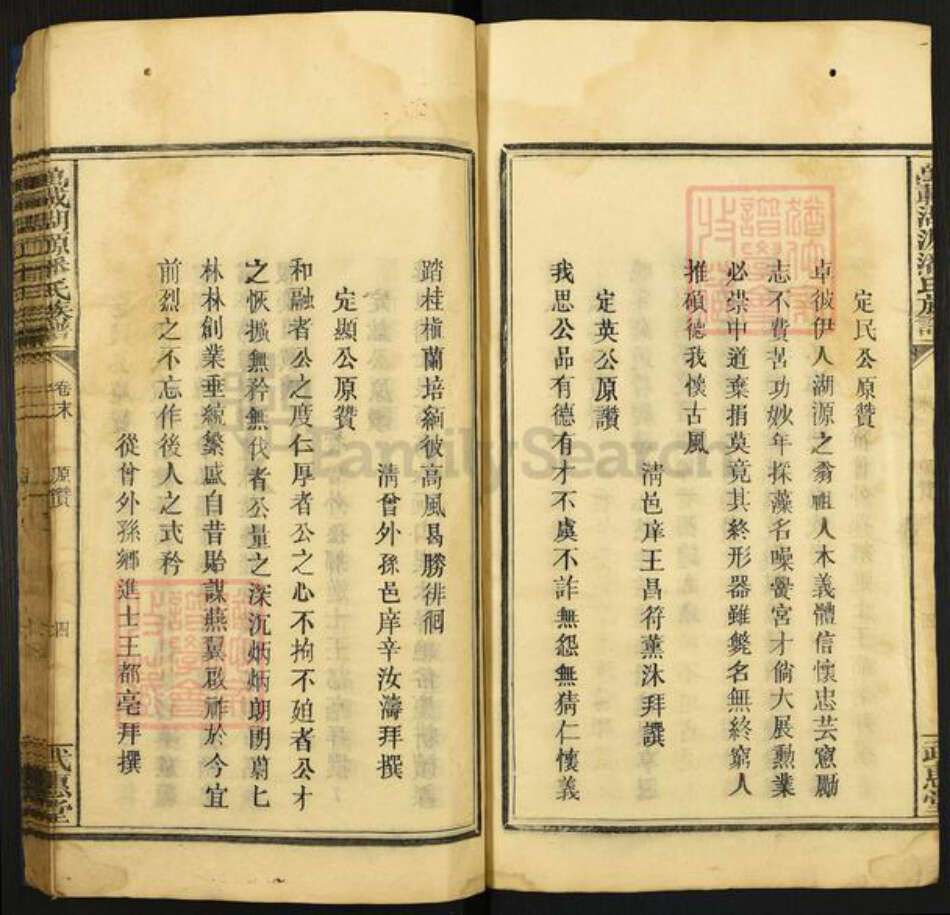 定民公原贊
卓彼伊人湖源之翁祖人本義體信懷忠芸窓勵
志不費苦功妙年探藻名噪黌宮才倘大展勲業
必崇中道棄捐莫竟其終形器雖斃名無終窮人
推碩德我懷古風
清邑庠王昌符薰沐拜譔
定英公原讚
我思公品有德有才不虞不詐無怨無猜仁懷義
踏桂植蘭培緬彼高風曷勝徘徊
清曾外孫邑庠辛汝濤拜撰
定顯公原贊
和融者公之度仁厚者公之心不拘不廹者公才
之恢擴無矜無伐者公量之深沉炳炳朗朗蔚匕
林林創業垂統繁盛自昔貽謀燕翼啟祚於今宜
前烈之不忘作後人之式矜
從曾外孫鄉進士王都亳拜撰
萬載湖源潘氏族譜
卷末
原讚
四
武惠堂
FamilySearch